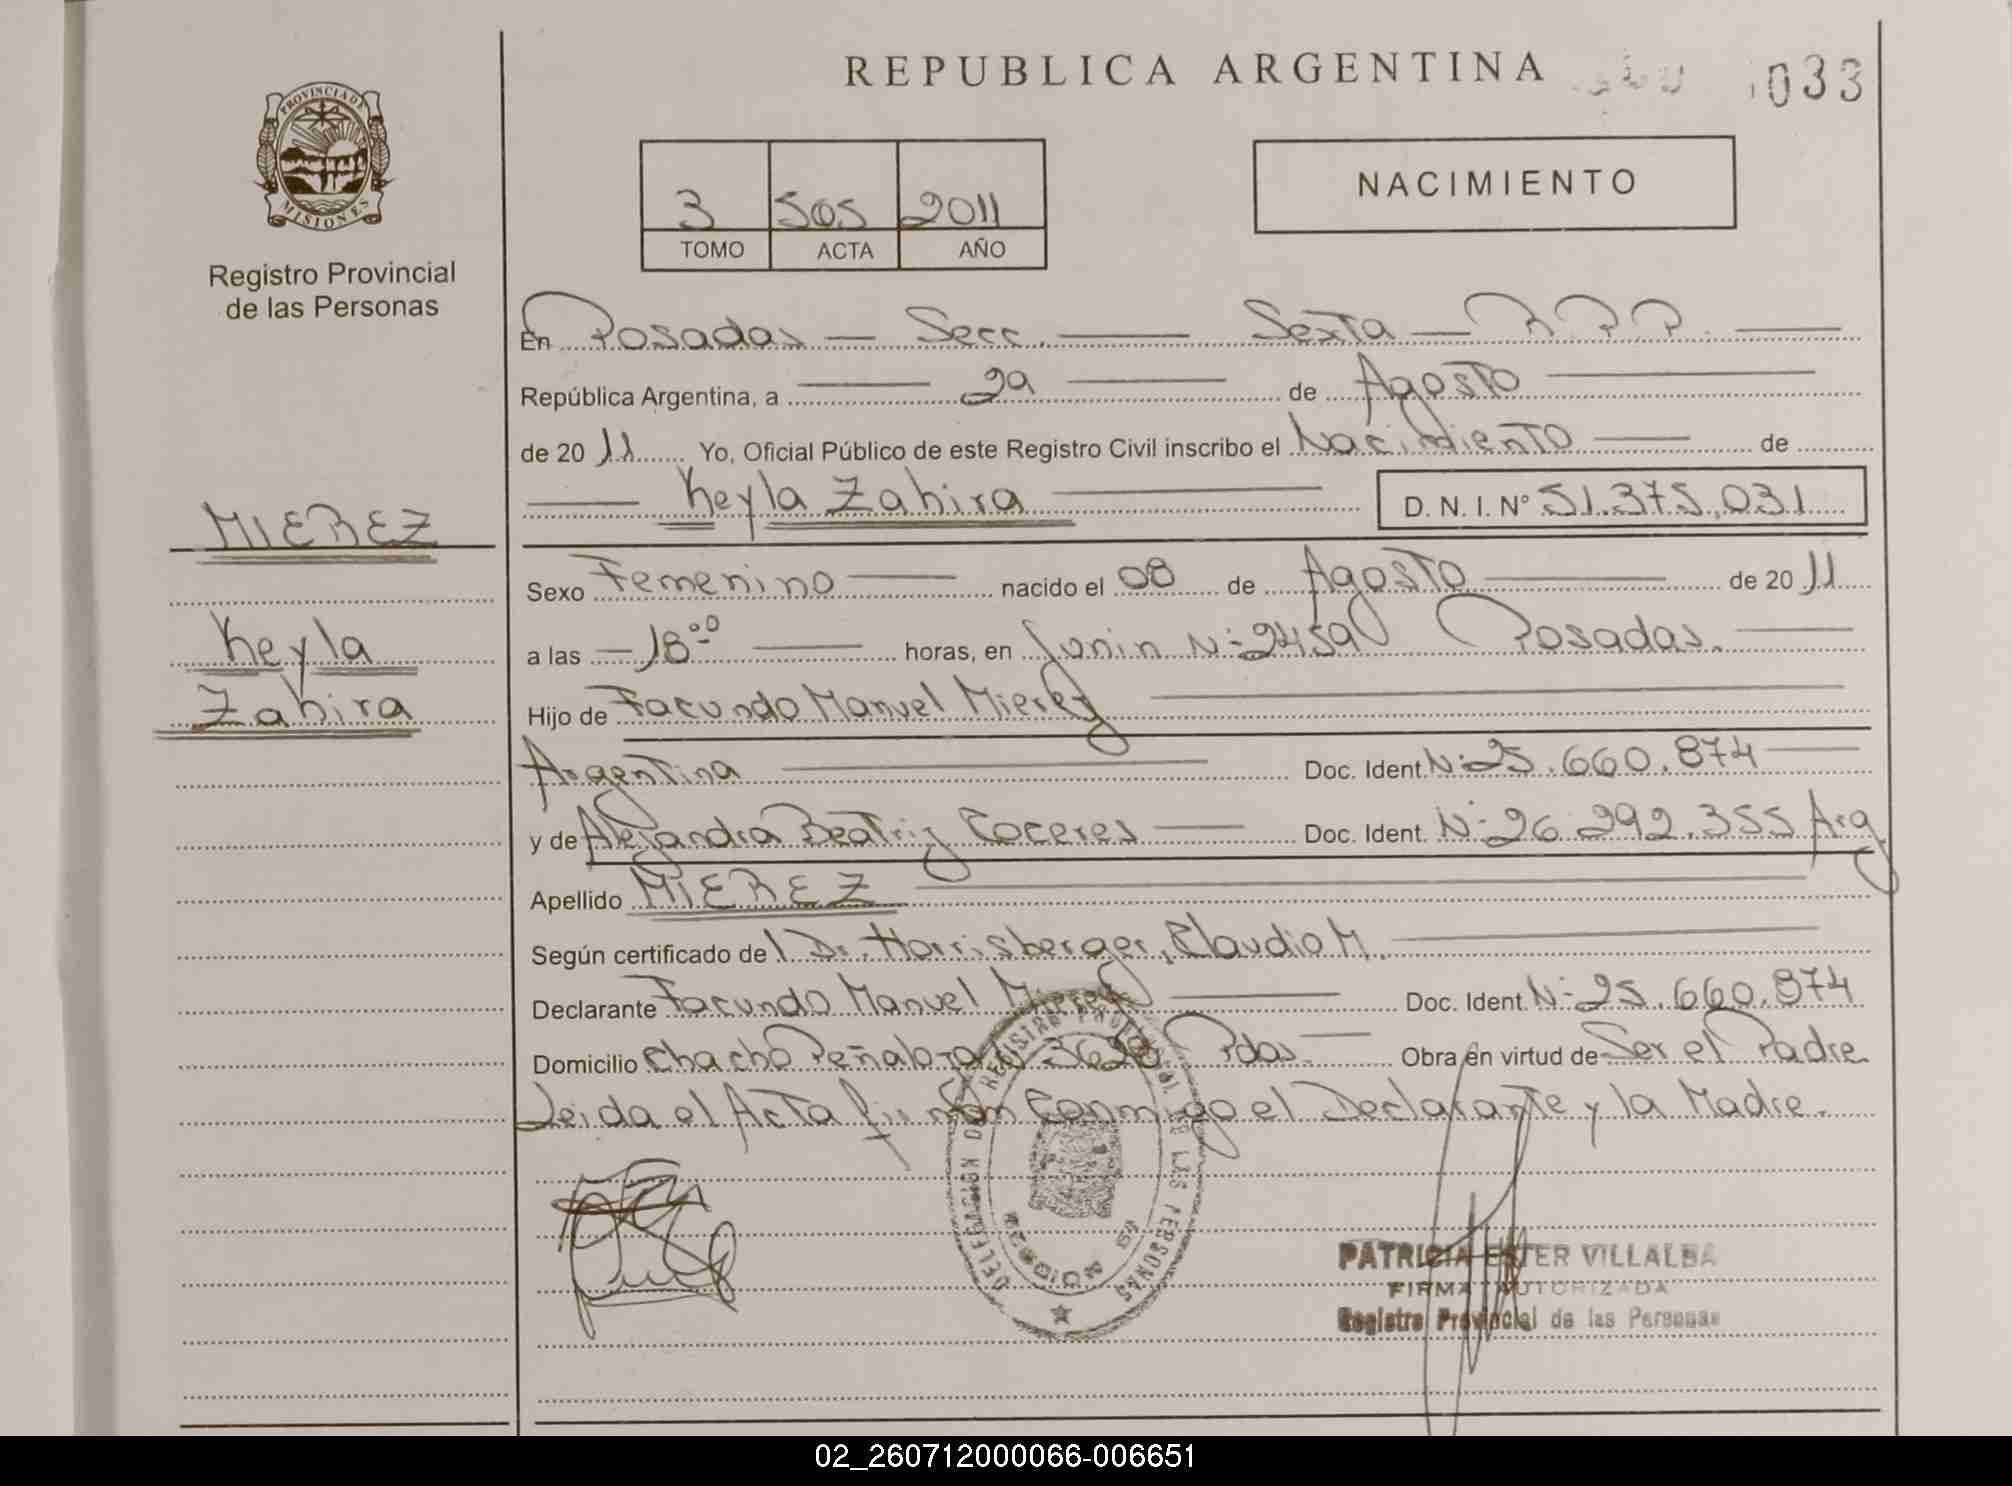 REPUBLICA ARGENTINA
033
PROVINCIA DE
MISIONES
Registro Provincial
de las Personas
3 505 2011
TOMO ACTA AÑO
NACIMIENTO
En Posadas — Secc. — Sexta — R.P.P. —
República Argentina, a — 29 — de Agosto —
de 20 11 Yo, Oficial Público de este Registro Civil inscribo el Nacimiento — de
— Keyla Zahira — D. N. I. Nº 51.375.031
MIEREZ
Keyla
Zahira
Sexo Femenino — nacido el 08 de Agosto — de 20 11
a las — 18⁰⁰ — horas, en Junin Nº 2459 Posadas. —
Hijo de Facundo Manuel Mierez —
Argentina — Doc. Ident. Nº 25.660.874 —
y de Alejandra Beatriz Coceres — Doc. Ident. Nº 26.292.355 Arg
Apellido MIEREZ —
Según certificado de l Dr. Horrisberger, Claudio M. —
Declarante Facundo Manuel Mierez — Doc. Ident. Nº 25.660.874
Domicilio Chacho Peñaloza Pdas. — Obra en virtud de Ser el Padre
Leida el Acta firman Conmigo el Declarante y la Madre.
DELEGACION DEL REGISTRO PROVINCIAL DE LAS PERSONAS
PATRICIA ESTER VILLALBA
FIRMA AUTORIZADA
Registro Provincial de las Personas
02_260712000066-006651